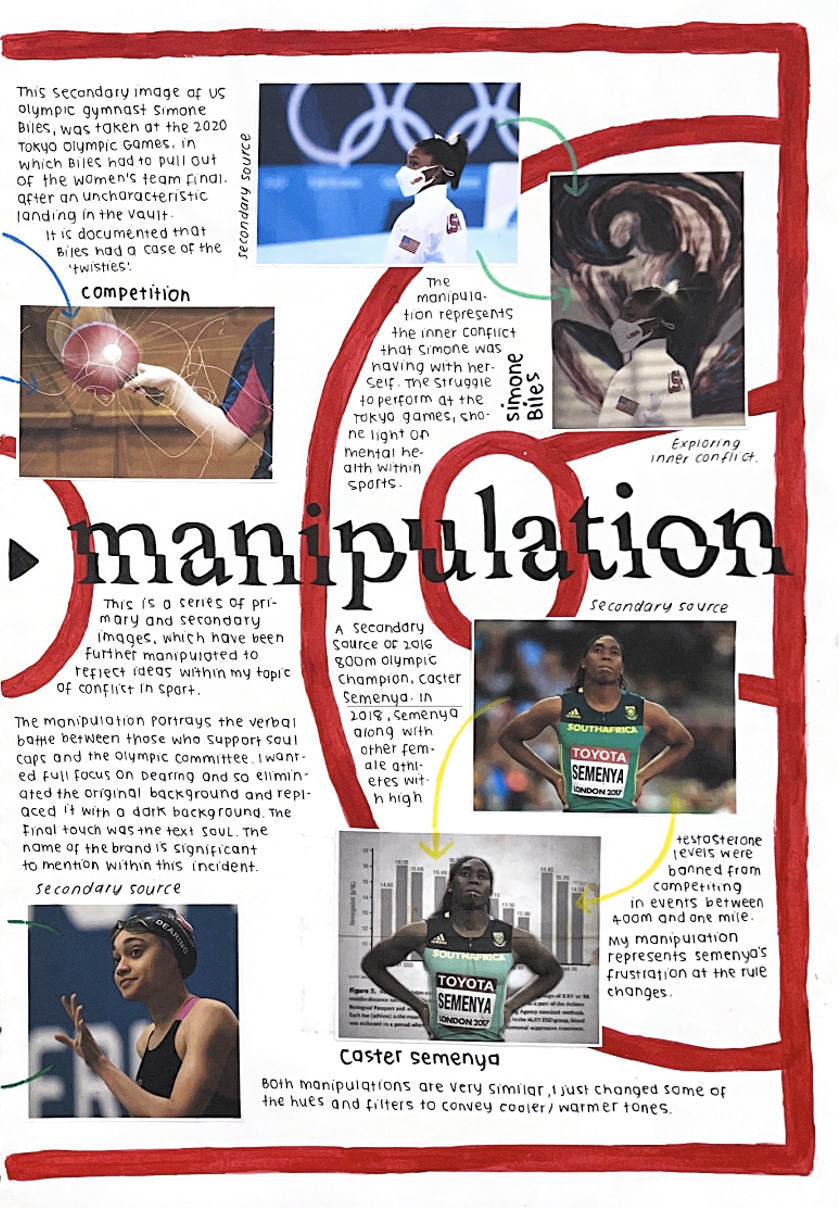 This secondary image of US
Olympic gymnast Simone
Biles, was taken at the 2020
Tokyo Olympic Games, in
which Biles had to pull out
of the women's team final.
after an uncharacteristic
landing in the vault.
It is documented that
Biles had a case of the
'twisties'.
secondary source
competition
The
manipula-
tion represents
the inner conflict
that Simone was
having with her-
self. The struggle
to perform at the
Tokyo games, sho-
ne light on
mental he-
alth within
sports.
simone
Biles
Exploring
inner conflict.
manipulation
This is a series of pri-
mary and secondary
images, which have been
further manipulated to
reflect ideas within my topic
of conflict in sport.
The manipulation portrays the verbal
battle between those who support soul
caps and the Olympic committee. I want-
ed full focus on Dearing and so elimin-
ated the original background and repl-
aced it with a dark background. The
final touch was the text SOUL. The
name of the brand is significant
to mention within this incident.
secondary source
DEARING
secondary source
A Secondary
Source of 2016
800m Olympic
Champion, Caster
Semenya. In
2018, Semenya
along with
other fem-
ale athl-
etes wit-
h high
SOUTHAFRICA
TOYOTA
SEMENYA
LONDON 2017
testosterone
levels were
banned from
competiting
in events between
400m and one mile.
My manipulation
represents semenya's
frustration at the rule
changes.
Figure 7.
SOUTHAFRICA
TOYOTA
SEMENYA
LONDON 2017
Caster semenya
Both manipulations are very similar, I just changed some of
the hues and filters to convey cooler/warmer tones.